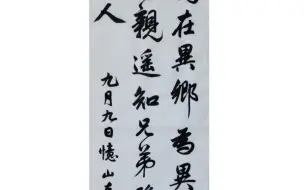 在異鄉為異
親遥知兄弟
人
九月九日憶山